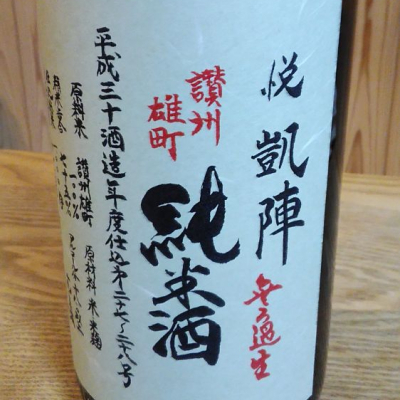 悦凱陣
無ろ過生
讃州
雄町
純米酒
平成三十酒造年度仕込第二十七〜二十八号
原料米 讃州雄町
一〇〇%
原材料 米 米麹